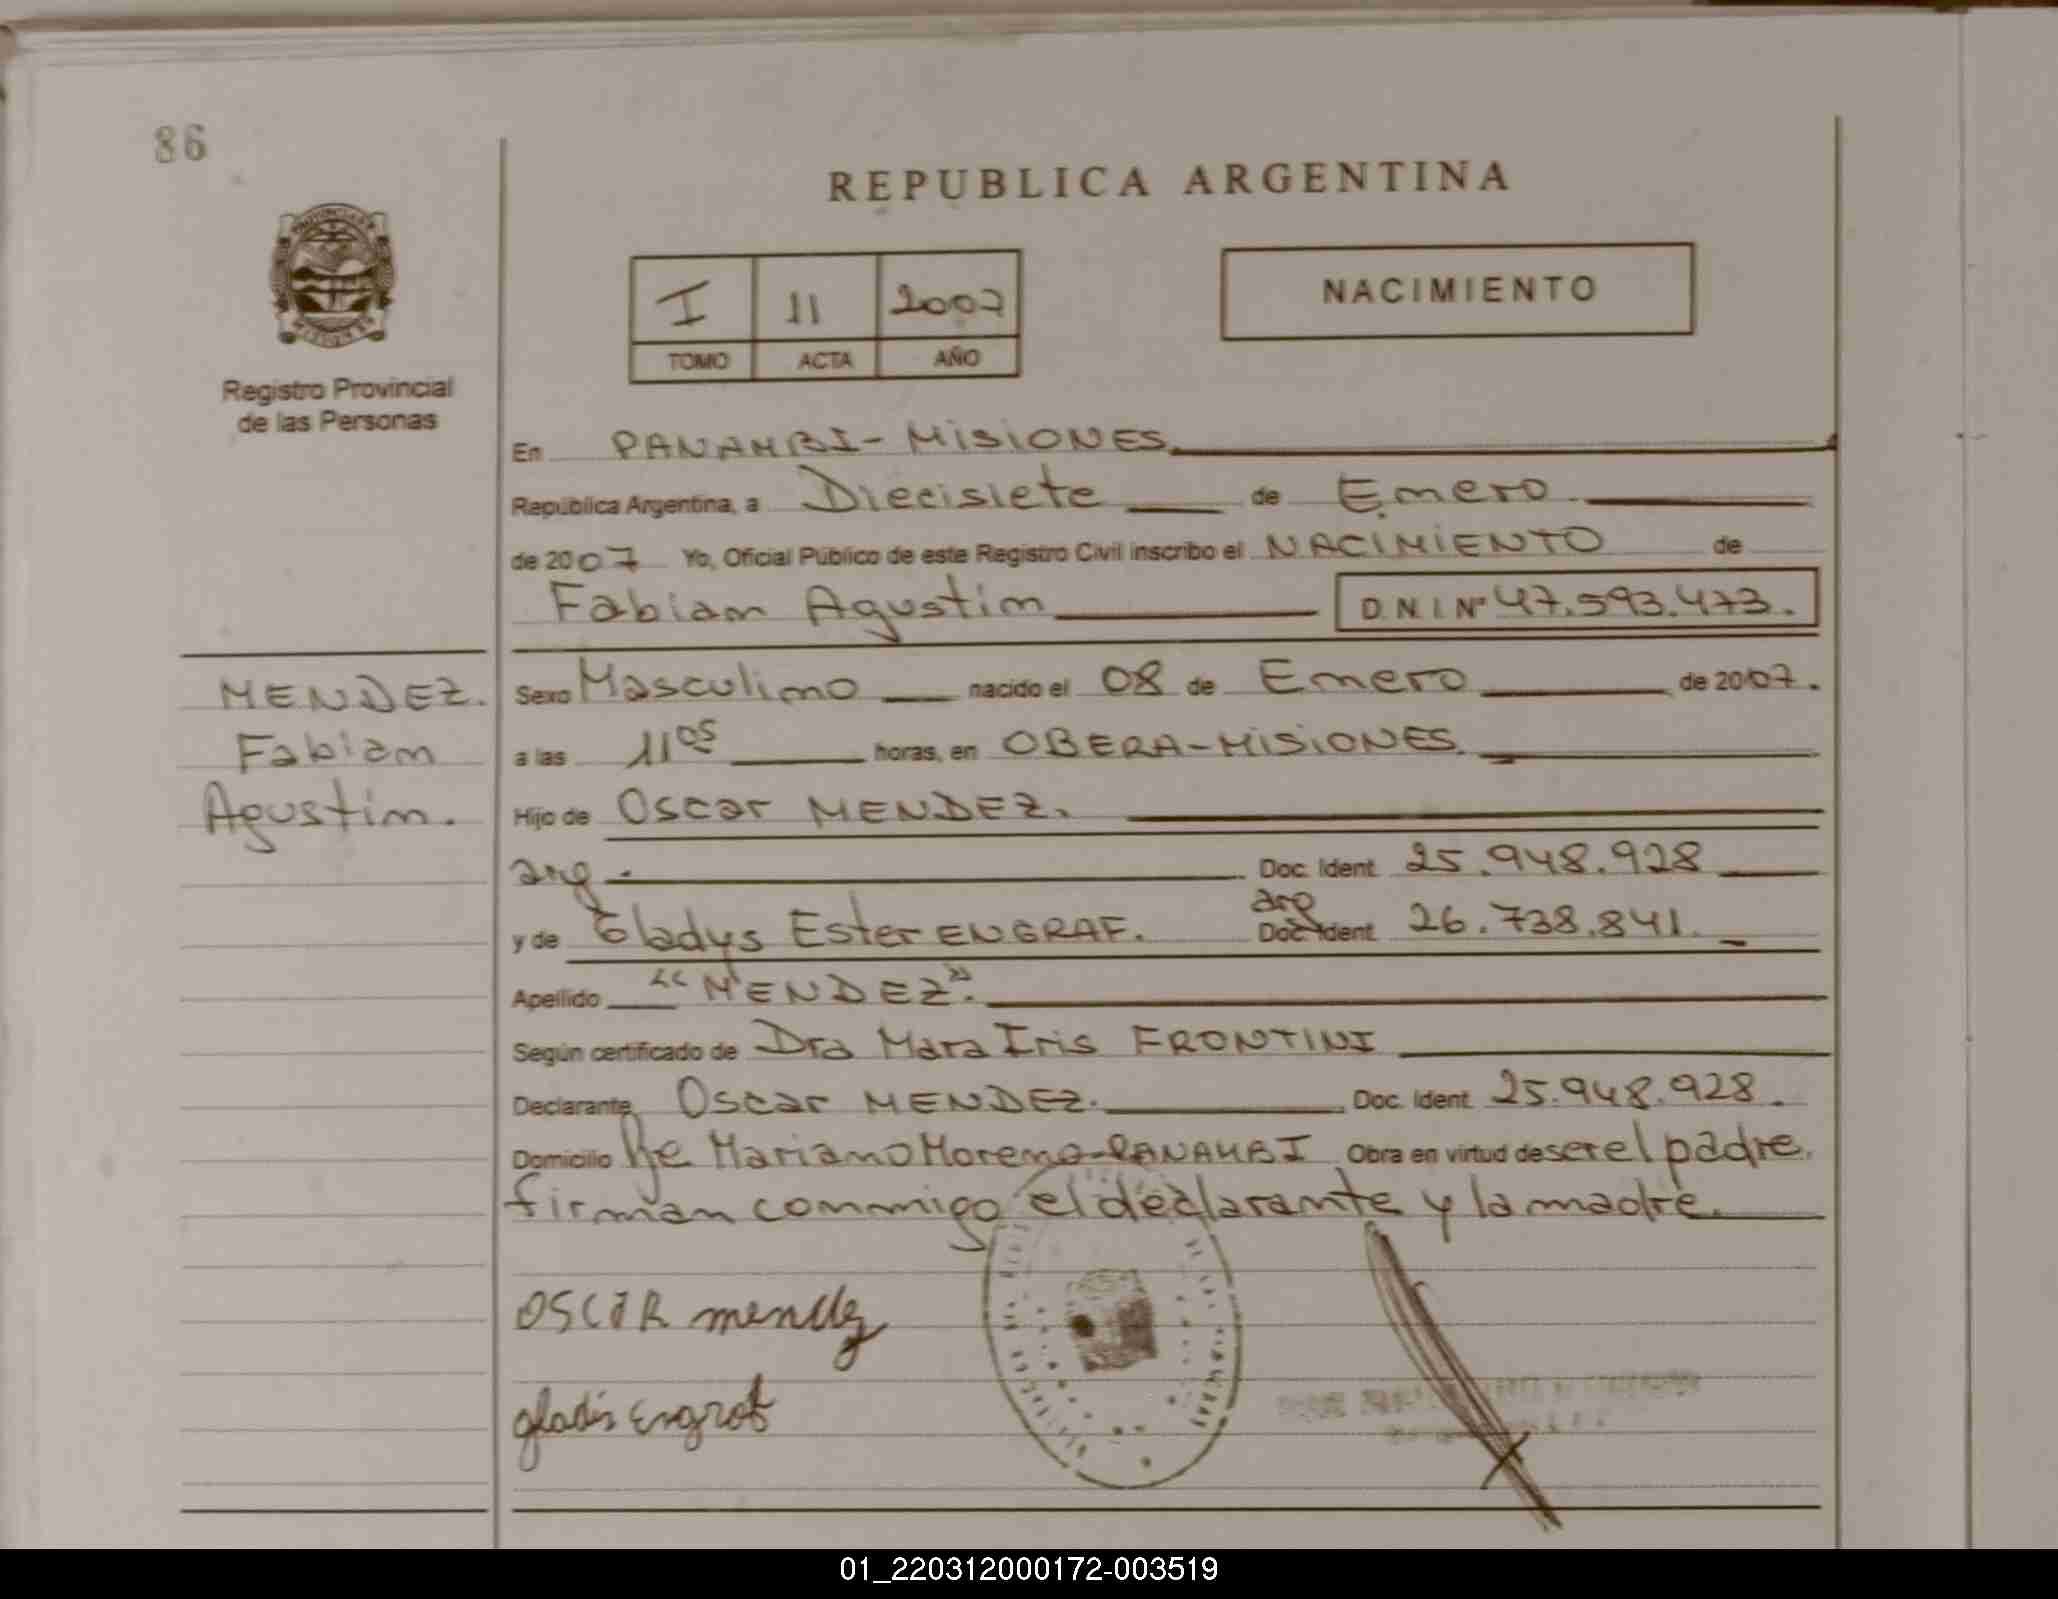 86
REPUBLICA ARGENTINA
PROVINCIA DE
MISIONES
I 11 2007
TOMO ACTA AÑO
NACIMIENTO
Registro Provincial
de las Personas
En PANAMBI - MISIONES
República Argentina, a Diecisiete de Enero
de 2007 Yo, Oficial Público de este Registro Civil inscribo el NACIMIENTO de
Fabian Agustin D.N.I Nº 47.593.473.
MENDEZ.
Fabian
Agustin.
Sexo Masculino nacido el 08 de Enero de 2007.
a las 11 05 horas, en OBERA - MISIONES.
Hijo de Oscar MENDEZ.
arg. Doc. Ident. 25.948.928
arg
y de Gladys Ester ENGRAF. Doc. Ident. 26.738.841.
Apellido "MENDEZ".
Según certificado de Dra Mara Iris FRONTINI
Declarante Oscar MENDEZ. Doc. Ident. 25.948.928.
Domicilio Mariano Moreno - PANAMBI Obra en virtud de ser el padre.
firman conmigo el declarante y la madre.
OSCAR mendez
gladis engraf
01_220312000172-003519